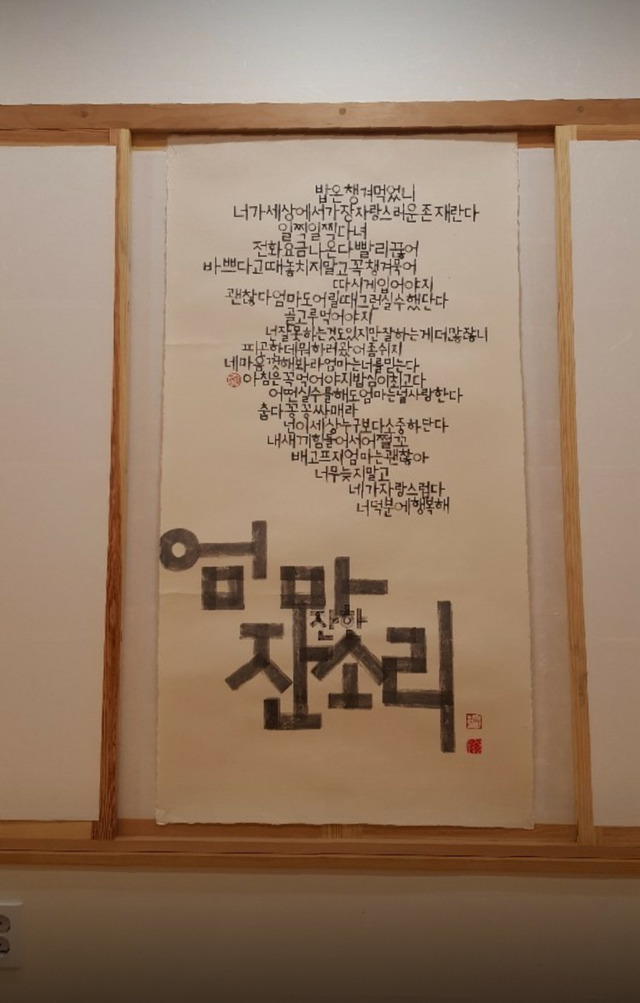 밥은챙겨먹었니
너가세상에서가장자랑스러운존재란다
일찍일찍다녀
전화요금나온다빨리끊어
바쁘다고때놓치지말고꼭챙겨묵어
따시게입어야지
괜찮다엄마도어릴때그런실수했단다
골고루먹어야지
넌잘못하는것도있지만잘하는게더많잖니
피곤한데뭐하러왔어좀쉬지
네마음껏해봐라엄마는너를믿는다
아침은꼭먹어야지밥심이최고다
어떤실수를해도엄마는널사랑한다
춥다꽁꽁싸매라
넌이세상누구보다소중하단다
내새기힘들어서어쩔꼬
배고프지엄마는괜찮아
너무늦지말고
네가자랑스럽다
너덕분에행복해
엄마
잔하
잔소리